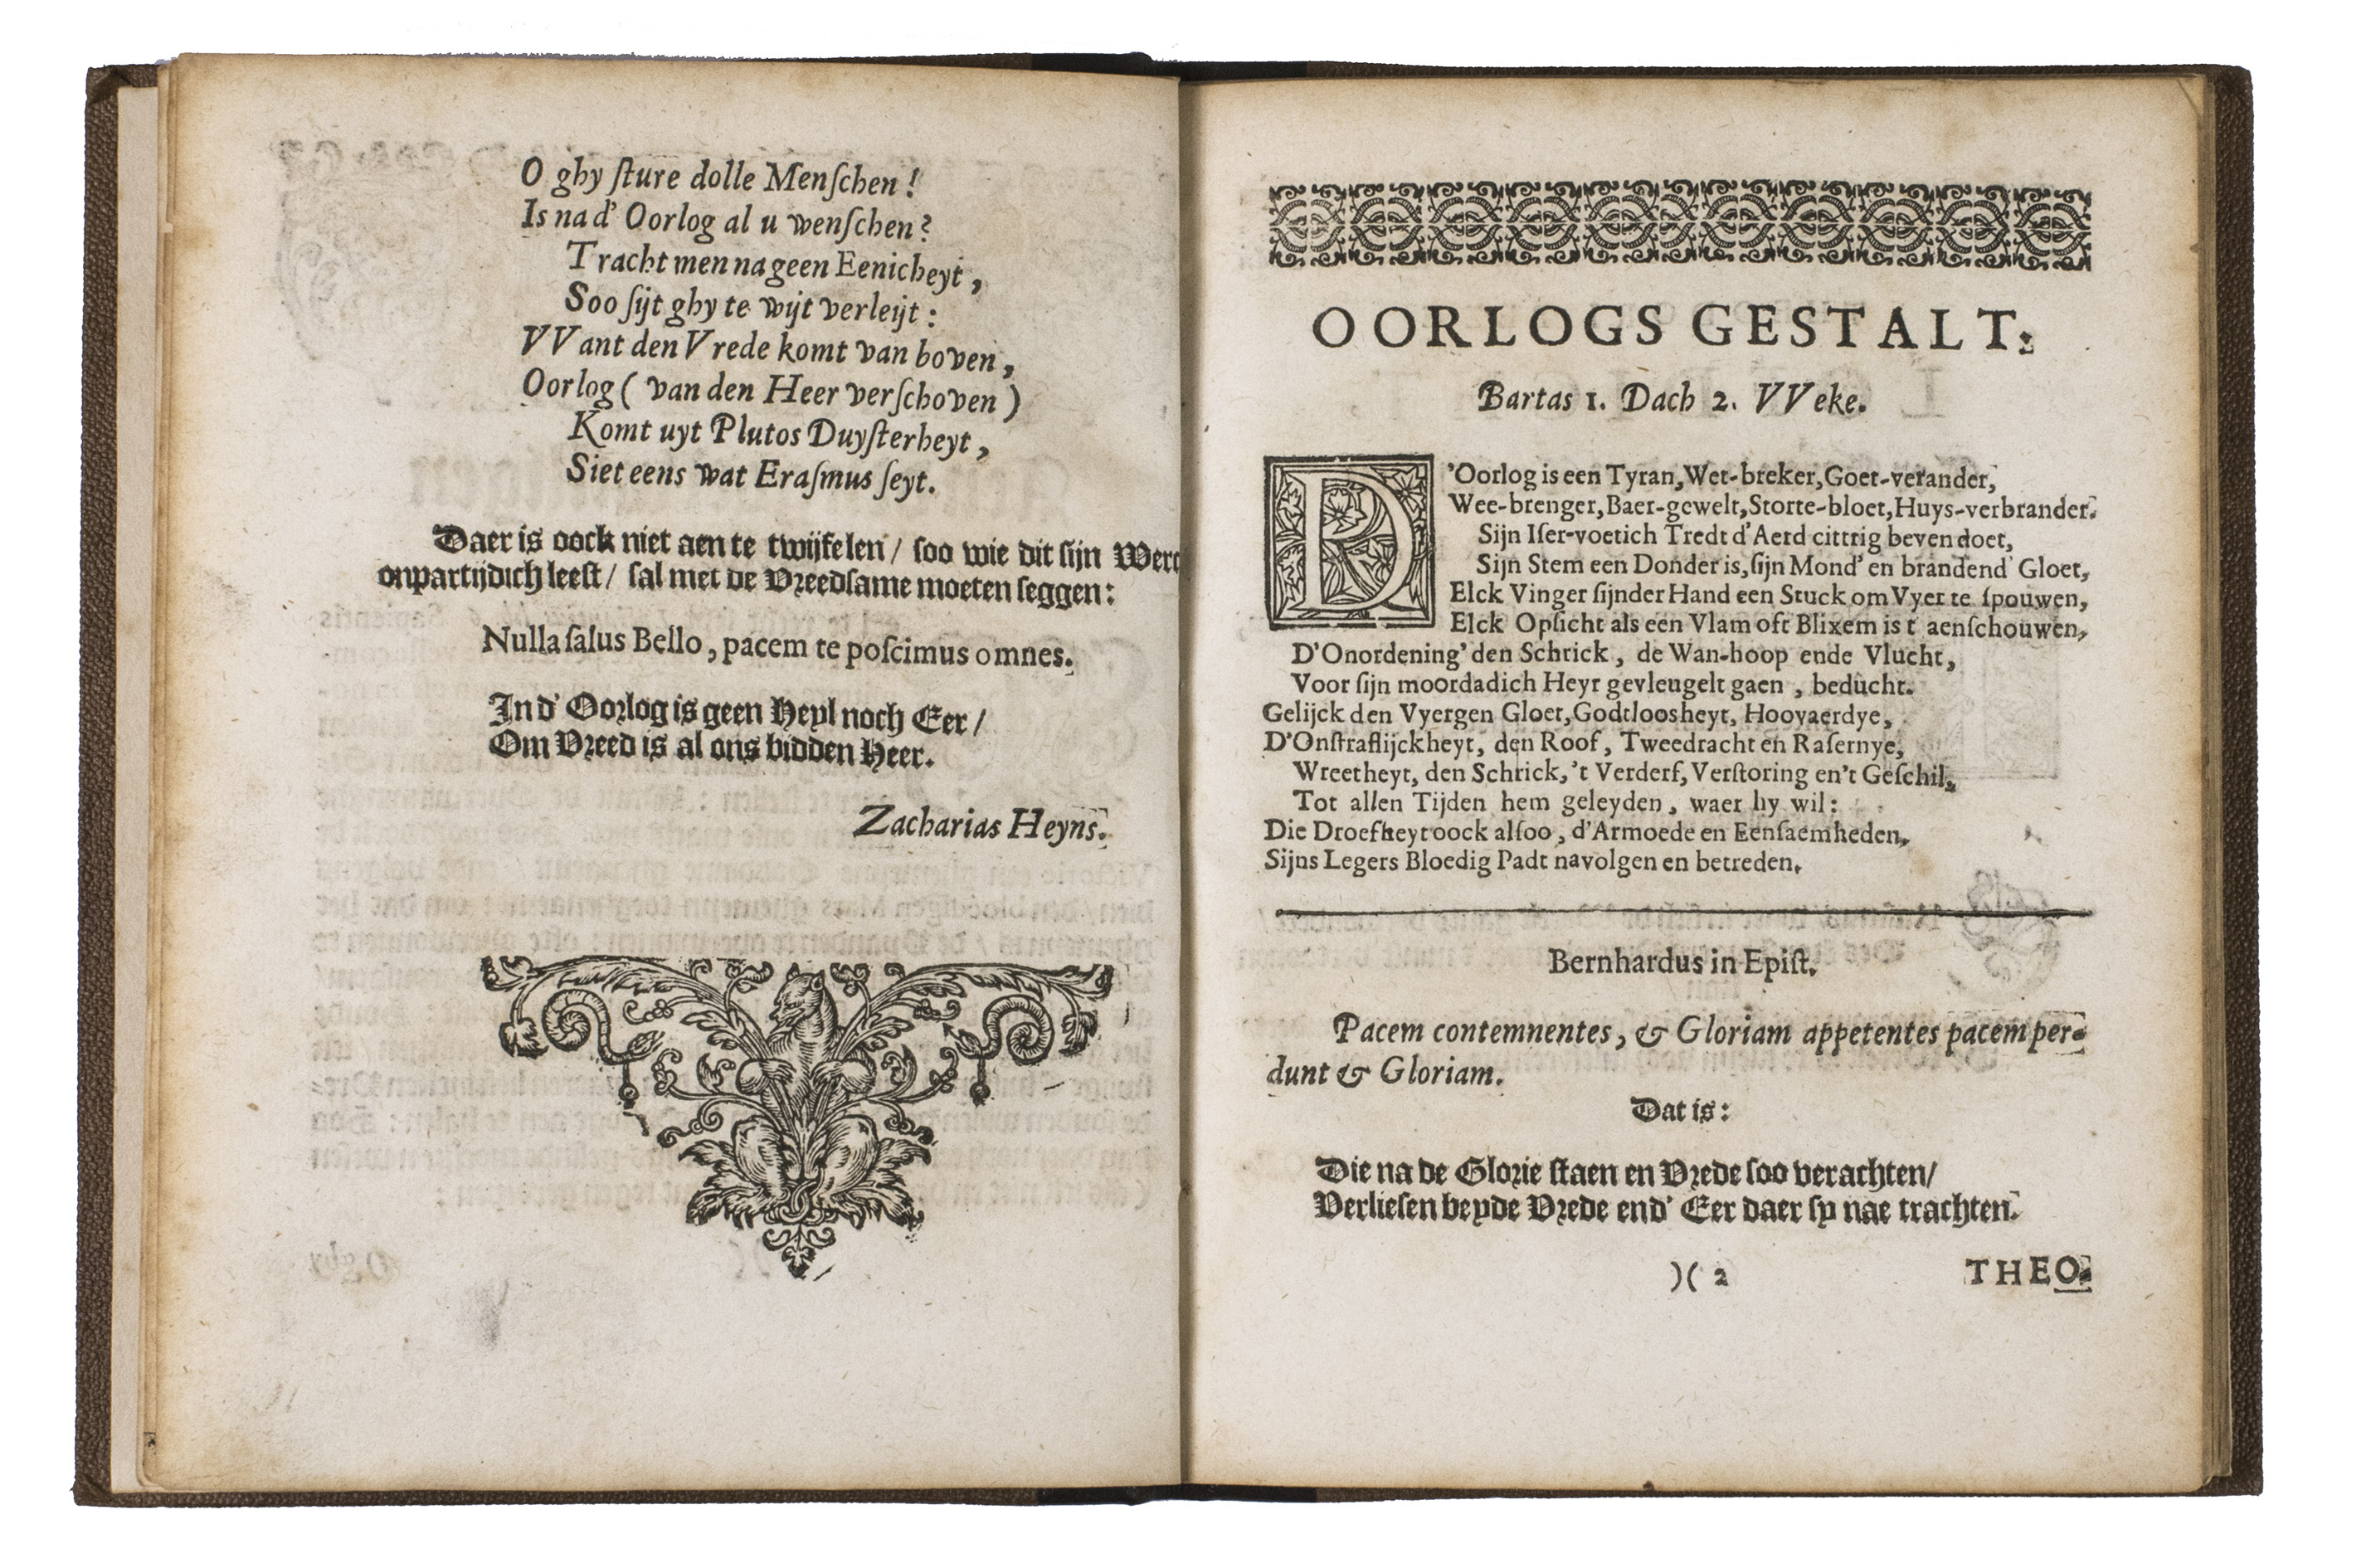 O ghy ſture dolle Menſchen!
Is na d' Oorlog al u wenſchen?
Tracht men na geen Eenicheyt,
Soo ſijt ghy te wijt verleijt:
VVant den Vrede komt van boven,
Oorlog (van den Heer verſchoven)
Komt uyt Plutos Duyſterheyt,
Siet eens wat Eraſmus ſeyt.
Daer is oock niet aen te twijfelen/ ſoo wie dit ſijn Werc
onpartijdich leeſt/ ſal met de Vreedſame moeten ſeggen:
Nulla ſalus Bello, pacem te poſcimus omnes.
In d' Oorlog is geen Heyl noch Eer/
Om Vreed is al ons bidden Heer.
Zacharias Heyns.
OORLOGS GESTALT:
Bartas 1. Dach 2. VVeke.
D'Oorlog is een Tyran, Wet-breker, Goet-verander,
Wee-brenger, Baer-gewelt, Storte-bloet, Huys-verbrander.
Sijn Iſer-voetich Tredt d'Aerd cittrig beven doet,
Sijn Stem een Donder is, ſijn Mond' en brandend Gloet,
Elck Vinger ſijnder Hand een Stuck om Vyer te ſpouwen,
Elck Opſicht als een Vlam oft Blixem is t aenſchouwen,
D'Onordening' den Schrick, de Wan-hoop ende Vlucht,
Voor ſijn moordadich Heyr gevleugelt gaen, beducht.
Gelijck den Vyergen Gloet, Godtloosheyt, Hoovaerdye,
D'Onſtraflijckheyt, den Roof, Tweedracht en Raſernye,
Wreetheyt, den Schrick, 't Verderf, Verſtoring en't Geſchil,
Tot allen Tijden hem geleyden, waer hy wil:
Die Droefheyt oock alſoo, d'Armoede en Eenſaemheden,
Sijns Legers Bloedig Padt navolgen en betreden.
Bernhardus in Epiſt.
Pacem contemnentes, & Gloriam appetentes pacem per-
dunt & Gloriam.
Dat is:
Die na de Glorie ſtaen en Vrede ſoo verachten/
Verlieſen beyde Vrede end' Eer daer ſy nae trachten.
)( 2 THEO-